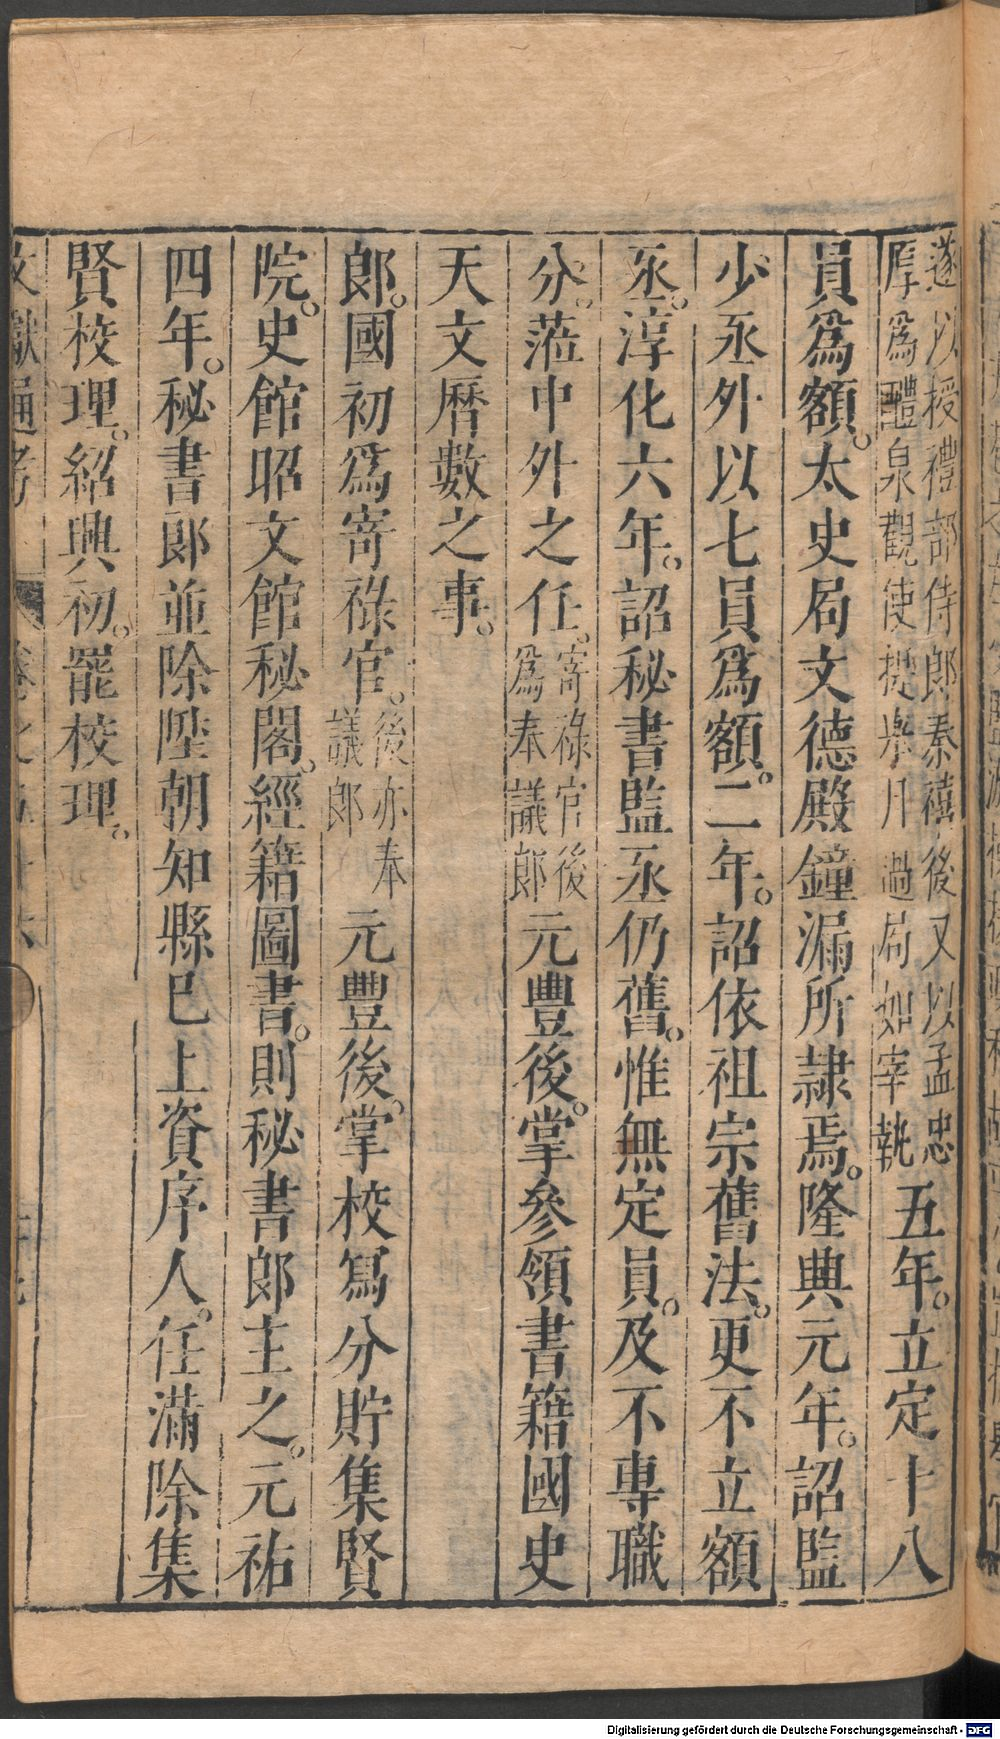 遂以授禮部侍郎秦禧後又以孟忠
厚爲醴泉觀使提舉月過局如宰執
五年。立定十八
員爲額。太史局文德殿鐘漏所隷焉。隆興元年。詔監
少丞外以七員爲額。二年。詔依祖宗舊法。更不立額
丞。淳化六年。詔秘書監丞仍舊。惟無定員。及不專職
分。蒞中外之任。
寄祿官後
爲奉議郎
元豐後。掌參領書籍國史
天文曆數之事。
郎。國初爲寄祿官。
後亦奉
議郎
元豐後。掌校寫分貯集賢
院。史館昭文館秘閣。經籍圖書。則秘書郎主之。元祐
四年。秘書郎並除陞朝知縣已上資序人。任滿除集
賢校理。紹興初。罷校理。
文獻通考
Digitalisierung gefördert durch die Deutsche Forschungsgemeinschaft - DFG